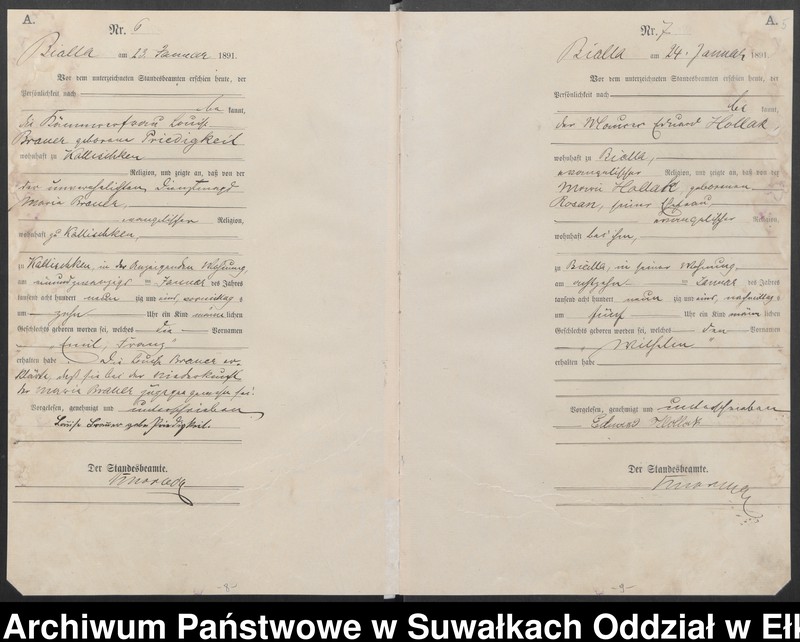 A.
Nr. 6
Bialla am 23. Januar 1891.
Vor dem unterzeichneten Standesbeamten erschien heute, der
Persönlichkeit nach
be kannt,
die Kämmererfrau Louise
Brauer geborene Friedigkeit
wohnhaft zu Kallischken
Religion, und zeigte an, daß von der
der unverehelichten Dienstmagd
Maria Brauer,
evangelischer Religion,
wohnhaft zu Kallischken,
zu Kallischken, in der Anzeigenden Wohnung,
am neunundzwanzigsten Januar des Jahres
tausend acht hundert neun zig und eins, vormittags
um zehn Uhr ein Kind männlichen
Geschlechts geboren worden sei, welches die Vornamen
"Emil, Franz"
erhalten habe. Die Louise Brauer er-
klärte, daß sie bei der Niederkunft
der Maria Brauer zugegen gewesen sei.
Vorgelesen, genehmigt und unterschrieben
Louise Brauer geb. Friedigkeit.
Der Standesbeamte.
-8-
A.
Nr. 7
Bialla am 24. Januar 1891
Vor dem unterzeichneten Standesbeamten erschien heute, der
Persönlichkeit nach
be kannt,
der Maurer Eduard Hollak,
wohnhaft zu Bialla,
evangelischer Religion, und zeigte an, daß von der
Marie Hollak, geborenen
Rosan, seiner Ehefrau
evangelischer Religion,
wohnhaft bei ihm,
zu Bialla, in seiner Wohnung
am achtzehn Januar des Jahres
tausend acht hundert neun zig und eins, nachmittags
um fünf Uhr ein Kind männ lichen
Geschlechts geboren worden sei, welches den Vornamen
"Wilhelm"
erhalten habe
Vorgelesen, genehmigt und unterschrieben
Eduard Hollak
Der Standesbeamte.
-9-
Archiwum Państwowe w Suwałkach Oddział w Eł